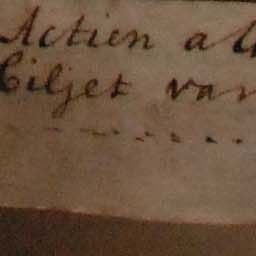 Actien al
biljet van